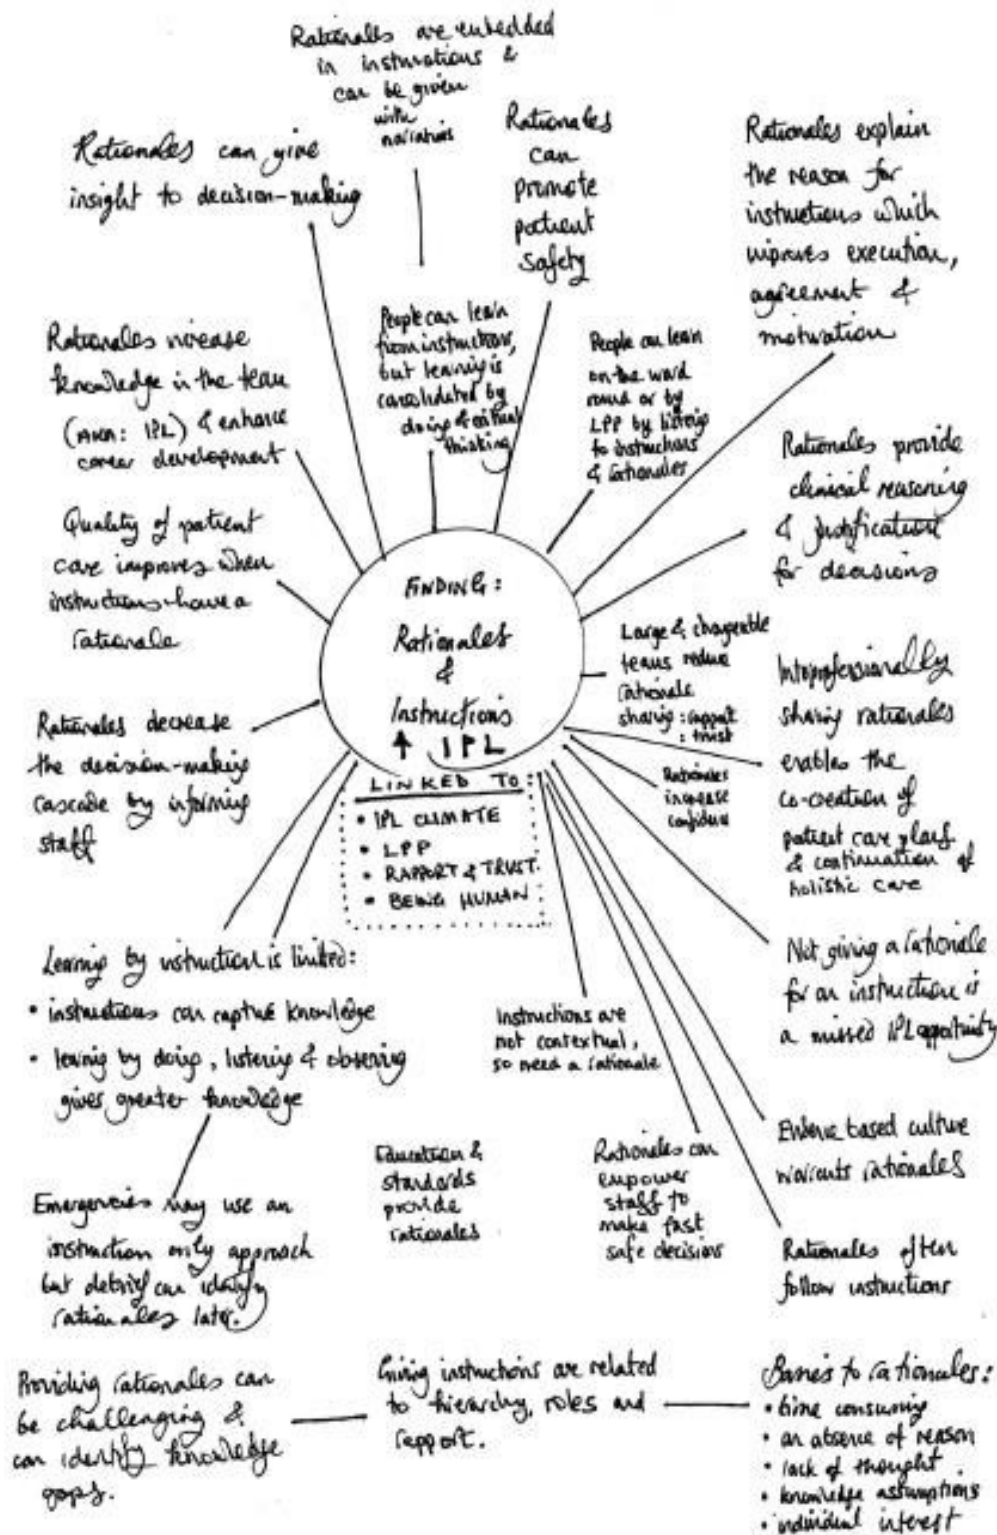 Rationales are embedded
in instructions &
can be given
with
narratives
Rationales can give
insight to decision-making
Rationales
can
promote
patient
safety
Rationales explain
the reason for
instructions which
improves execution,
agreement &
motivation
Rationales increase
knowledge in the team
(AKA: IPL) & enhance
career development
People can learn
from instructions,
but learning is
consolidated by
doing & critical
thinking
People can learn
on the ward
round or by
LPP by listening
to instructions
& rationales
Rationales provide
clinical reasoning
& justification
for decisions
Quality of patient
care improves when
instructions have a
rationale
FINDING:
Rationales
&
Instructions
↑ IPL
LINKED TO:
• IPL CLIMATE
• LPP
• RAPPORT & TRUST.
• BEING HUMAN
Large & changeable
teams reduce
rationale
sharing: rapport
: trust
Interprofessionally
sharing rationales
enables the
co-creation of
patient care plans
& continuation of
holistic care
Rationales
increase
confidence
Rationales decrease
the decision-making
cascade by informing
staff
Not giving a rationale
for an instruction is
a missed IPL opportunity
Learning by instruction is limited:
• instructions can capture knowledge
• learning by doing, listening & observing
gives greater knowledge
Instructions are
not contextual,
so need a rationale
Evidence based culture
warrants rationales
Education &
standards
provide
rationales
Rationales can
empower
staff to
make fast
safe decisions
Rationales often
follow instructions
Emergencies may use an
instruction only approach
but debrief can identify
rationales later.
Providing rationales can
be challenging &
can identify knowledge
gaps.
Giving instructions are related
to hierarchy, roles and
rapport.
Barriers to rationales:
• time consuming
• an absence of reason
• lack of thought
• knowledge assumptions
• individual interest